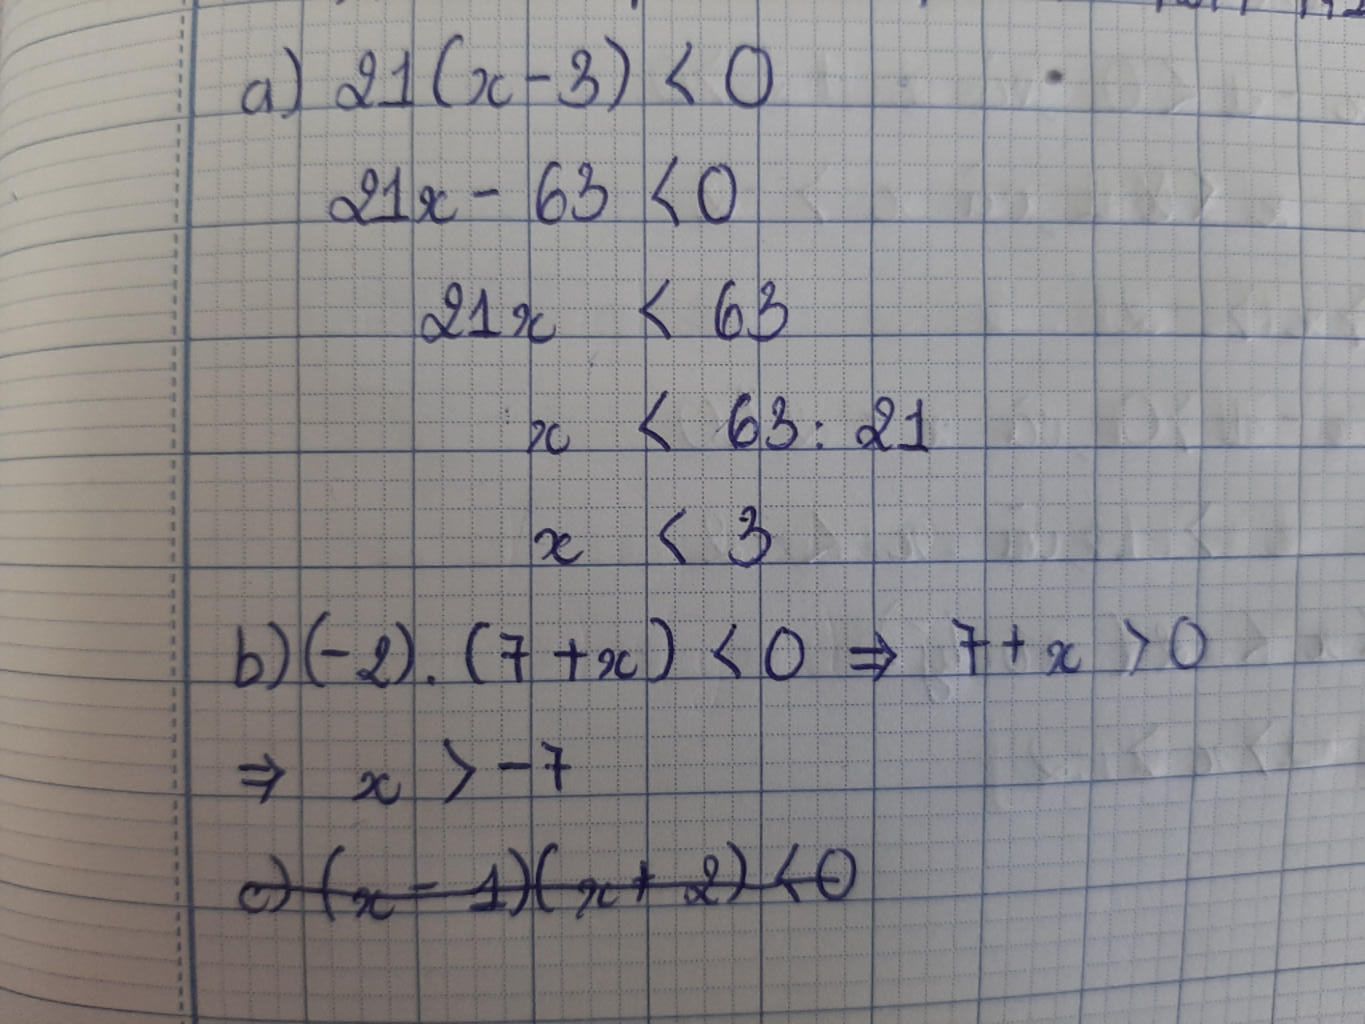 a) 21(x-3) < 0
21x - 63 < 0
21x < 63
x < 63 : 21
x < 3
b) (-2).(7+x) < 0 ⇒ 7+x > 0
⇒ x > -7
c) (x-1)(x+2) < 0